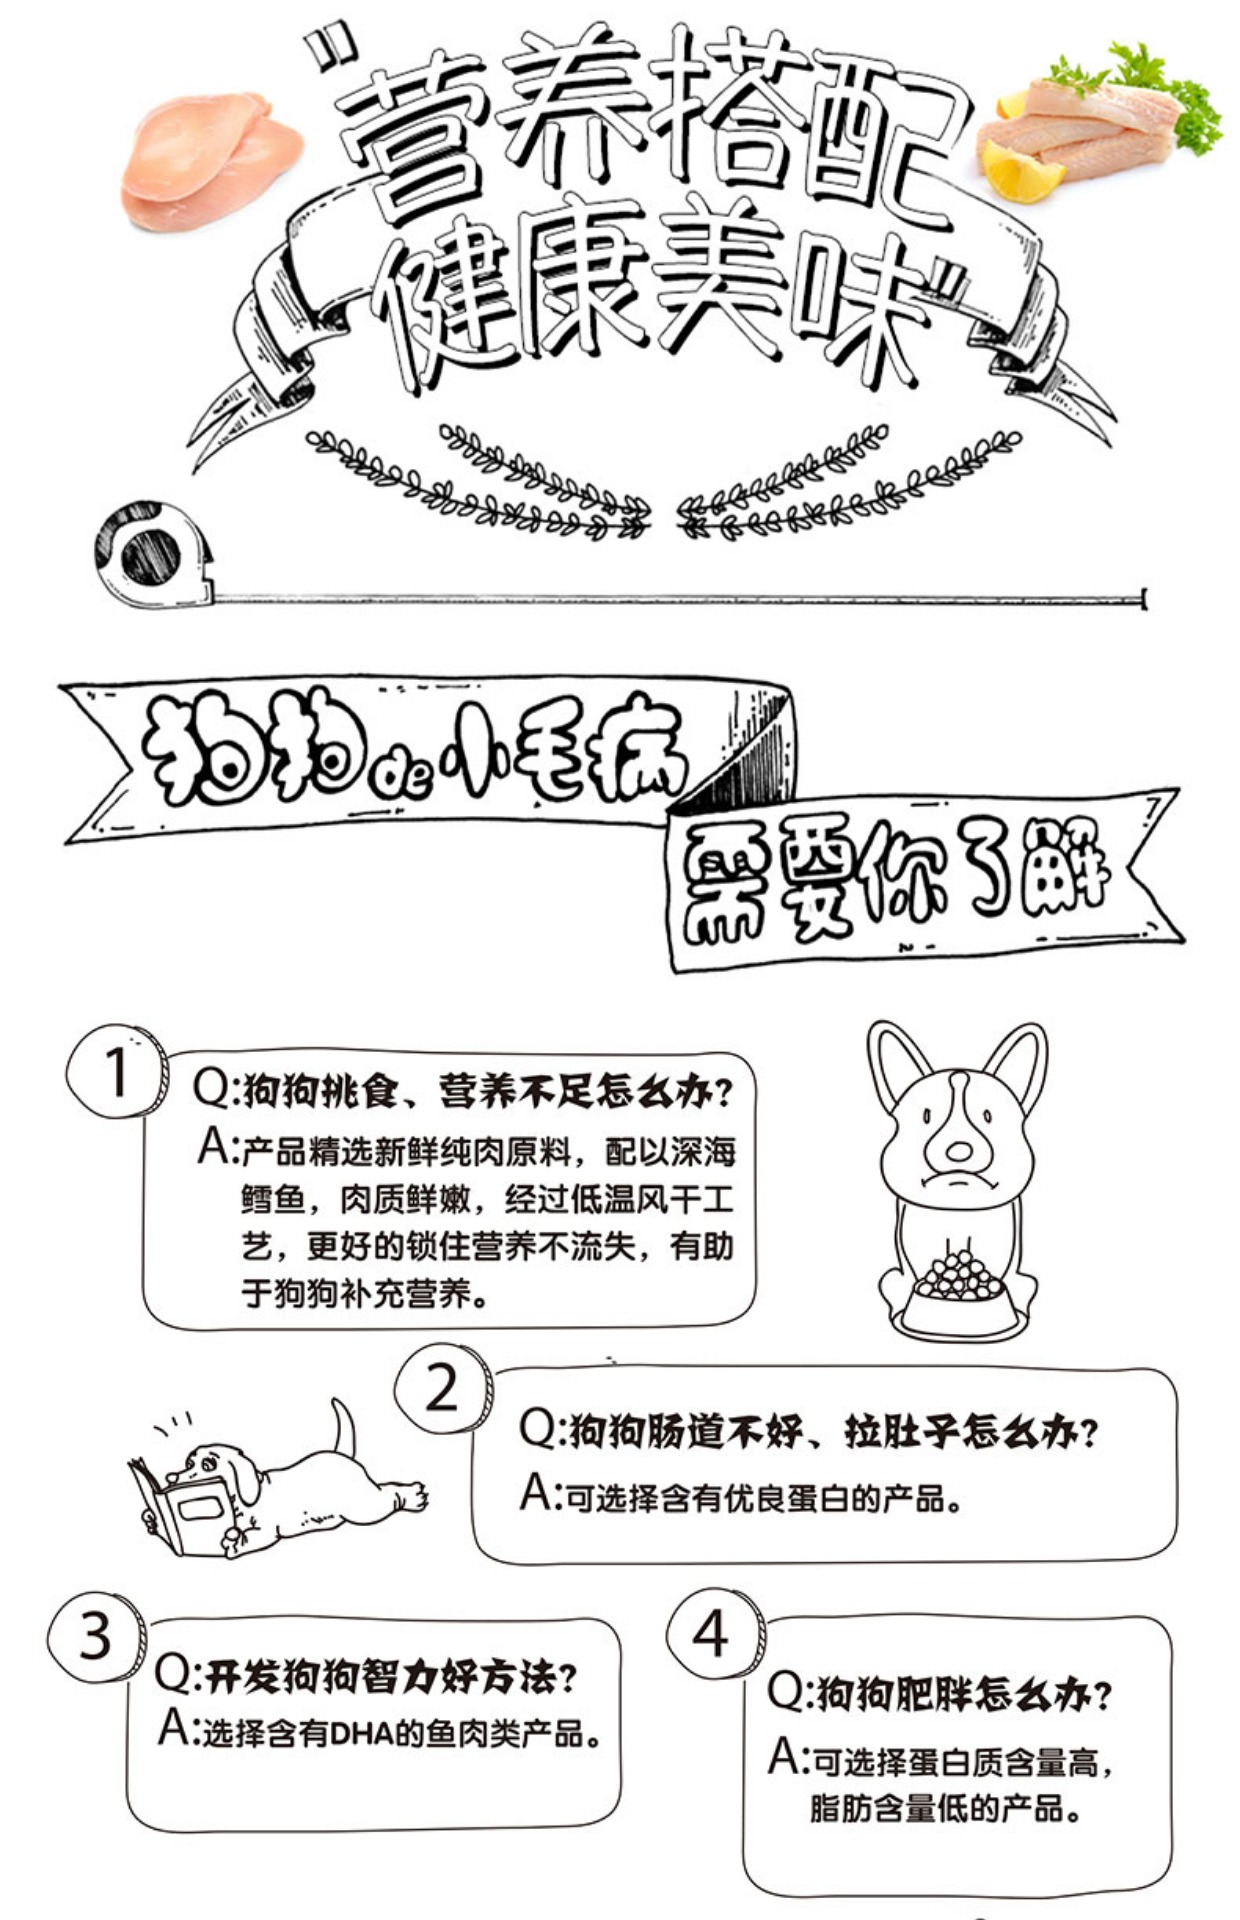 "营养搭配
健康美味"
狗狗de小毛病
需要你了解
1
Q:狗狗挑食、营养不足怎么办?
A:产品精选新鲜纯肉原料，配以深海
鳕鱼，肉质鲜嫩，经过低温风干工
艺，更好的锁住营养不流失，有助
于狗狗补充营养。
2
Q:狗狗肠道不好、拉肚子怎么办?
A:可选择含有优良蛋白的产品。
3
Q:开发狗狗智力好方法?
A:选择含有DHA的鱼肉类产品。
4
Q:狗狗肥胖怎么办?
A:可选择蛋白质含量高，
脂肪含量低的产品。